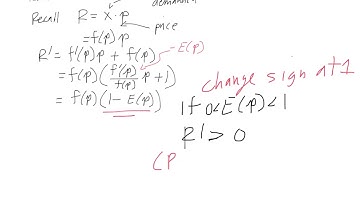 Recall R = x · p
price
= f(p) p
R' = f'(p) p + f(p)
E(p)
= f(p) ( f'(p)/f(p) p + 1 )
= f(p) ( 1 - E(p) )
change sign at 1
if 0 < E(p) < 1
R' > 0
(P